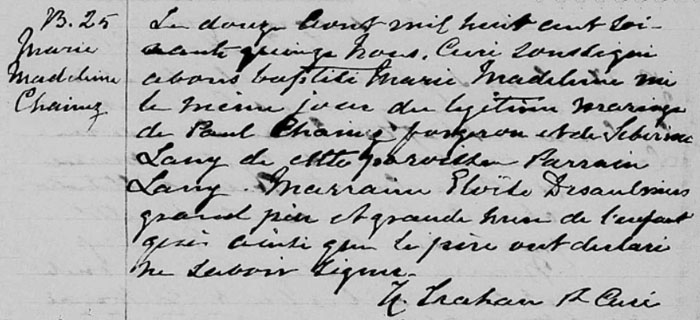 B. 25
Marie
Madeleine
Chainez
Le douze Aout mil huit cent soi-
xante quinze Nous, Curé soussigné
avons baptisé Marie Madeleine née
le même jour du légitime mariage
de Paul Chainez forgeron et de
Lany de cette paroisse Parrain
Lany. Marraine Eloïse Desaulniers
grand père et grande mère de l'enfant
qui ainsi que le père ont déclaré
ne savoir signer.
N. Trahan Ptre Curé